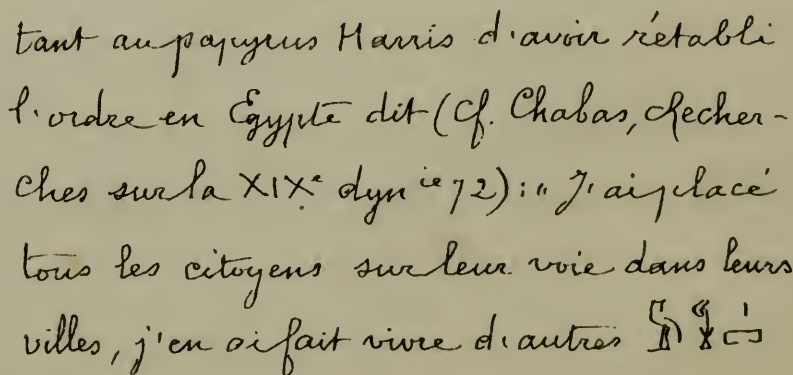 tant au papyrus Harris d'avoir rétabli
l'ordre en Egypte dit (Cf. Chabas, Recher-
ches sur la XIXe dyn ie 72) : " J'ai placé
tous les citoyens sur leur voie dans leurs
villes, j'en ai fait vivre d'autres